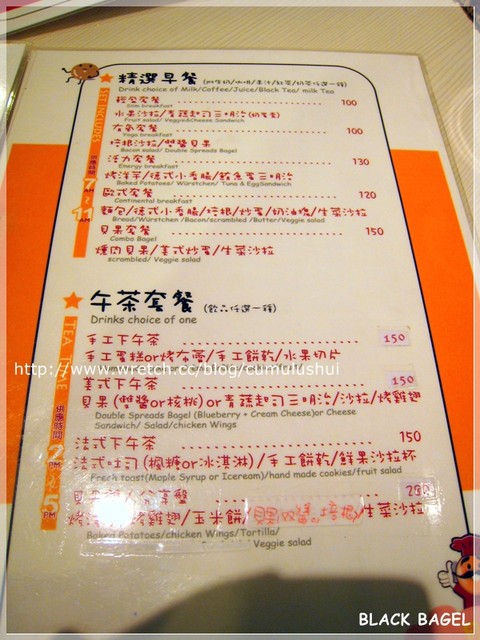 精選早餐 (附牛奶/咖啡/果汁/紅茶/奶茶任選一種)
Drink choice of Milk/Coffee/Juice/Black Tea/ milk Tea
SET INCLUDES
供應時間
7 AM ~ 11 AM
輕盈套餐 100
Slim breakfast
水果沙拉/青蔬起司三明治(奶蛋素)
Fruit salad/ Veggie&Cheese Sandwich
在氣套餐 100
Yoga breakfast
培根沙拉/雙醬貝果
Bacon salad/ Double Spreads Bagel
活力套餐 130
Energy breakfast
烤洋芋/德式小香腸/鮪魚蛋三明治
Baked Potatoes/ Würstchen/ Tuna & EggSandwich
歐式套餐 120
Continental breakfast
麵包/德式小香腸/培根/炒蛋/奶油燒/生菜沙拉
Bread/Würstchen /Bacon/scrambled /Butter/Veggie salad
貝果套餐 150
Combo Bagel
燻肉貝果/美式炒蛋/生菜沙拉
scrambled/ Veggie salad
午茶套餐 (飲品任選一種)
Drinks choice of one
TEA TIME
供應時間
2 PM ~ 5 PM
手工下午茶 150
手工蛋糕or烤布蕾/手工餅乾/水果切片
http://www.wretch.cc/blog/cumulushui
美式下午茶 150
貝果(雙醬or核桃)or青蔬起司三明治/沙拉/烤雞翅
Double Spreads Bagel (Blueberry + Cream Cheese)or Cheese
Sandwich/ Salad/chicken Wings
法式下午茶 150
法式吐司(楓糖or冰淇淋)/手工餅乾/鮮果沙拉杯
Fresh toast(Maple Syrup or Icecream)/hand made cookies/fruit salad
200
烤雞翅/玉米餅/貝果(雙醬.培根)/生菜沙拉
Baked Potatoes/chicken Wings/Tortilla/
Veggie salad
BLACK BAGEL